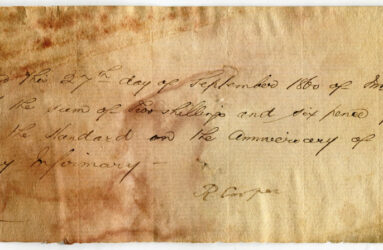 this 27th day of September 1860 of
the sum of two shillings and six pence
the Standard on the Anniversary of
Infirmary —
R Cooper